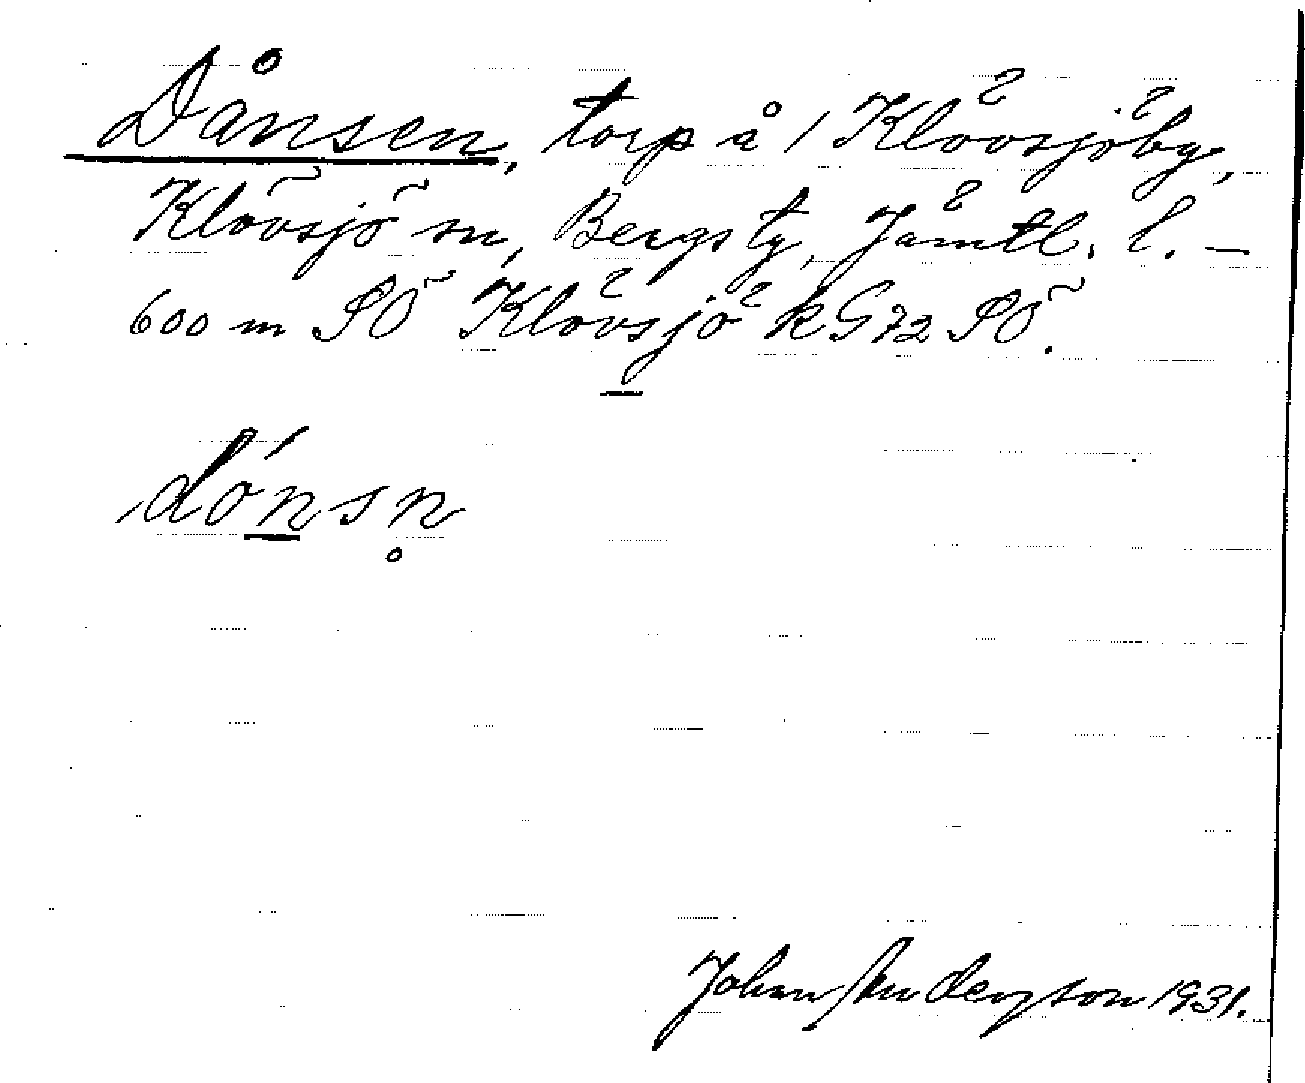 Dånsen, torp å 1 Klövsjöby,
Klövsjö sn, Bergs tg, Jämtl. l. –
600 m SÖ Klövsjö k G72 SÖ.
dónsn̥
Johan Anderson 1931.